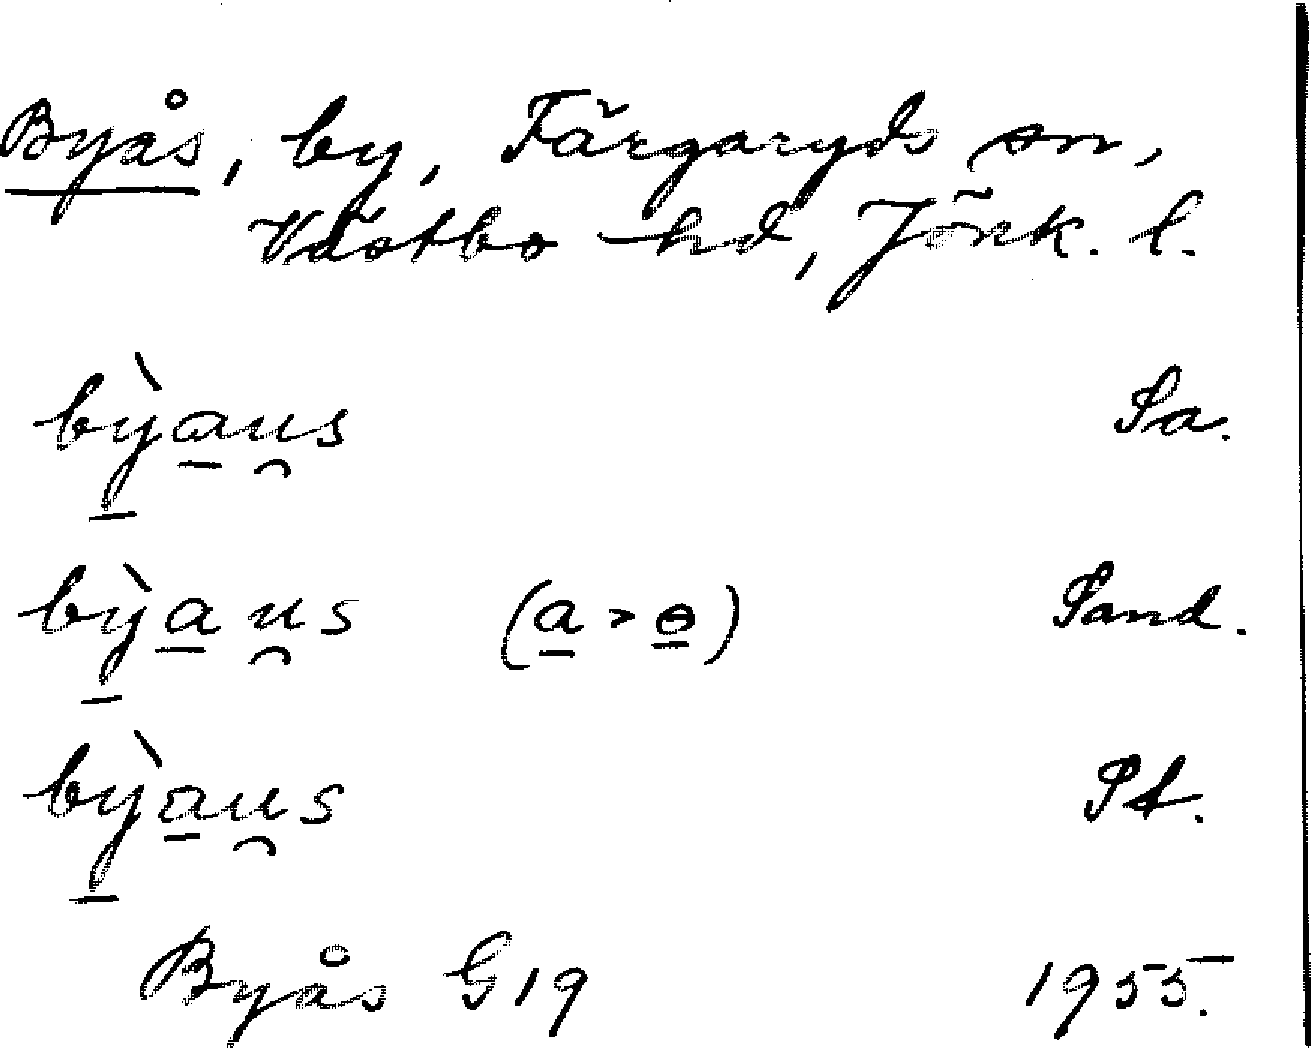 Byås, by, Färgaryds sn,
Västbo hd, Jönk. l.
bỳ̱a̱u̯s Sa.
bỳ̱a̱u̯s (a̱ > ɵ̱) Sand.
bỳ̱a̱u̯s Pt.
Byås G19 1955.